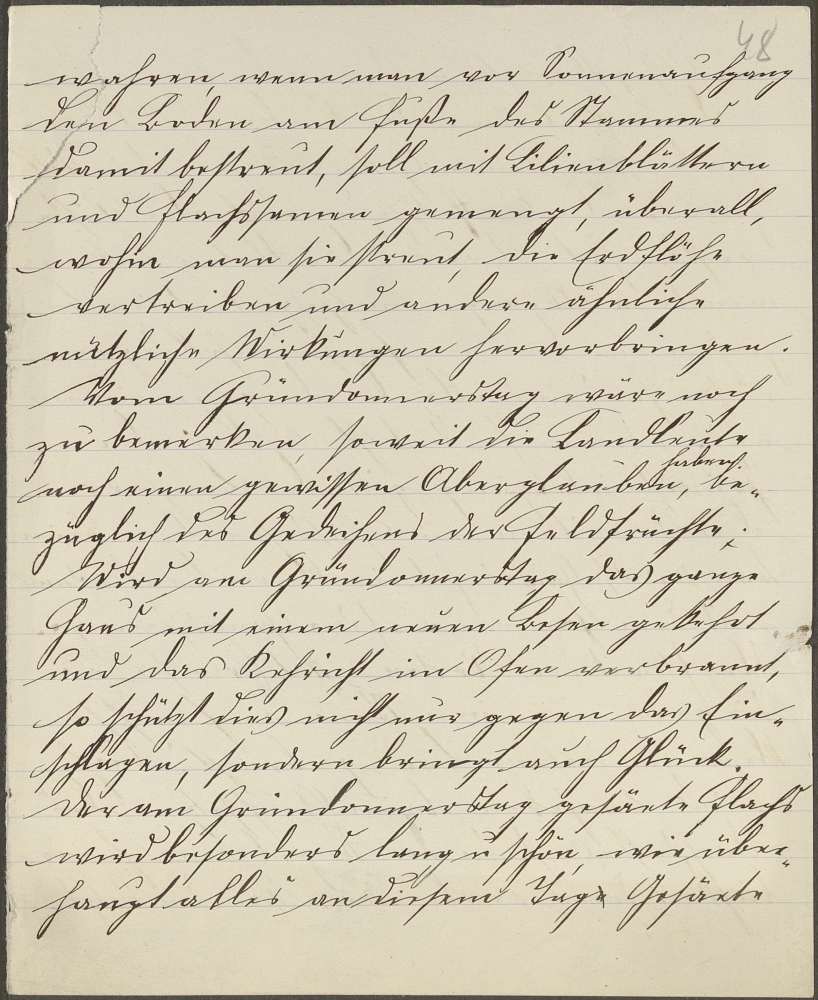 48
wahren, wenn man vor Sonnenaufgang
den Boden am Fuße des Stammes
damit bestreut, soll mit Lilienblättern
und Flachssamen gemengt, überall,
wohin man sie streut, die Erdflöhe
vertreiben und andere ähnliche
nützliche Wirkungen hervorbringen.
Vom Gründonnerstag wäre noch
zu bemerken, soweit die Landleute
noch einen gewissen Aberglauben haben, be-
züglich des Gedeihens der Feldfrüchte:
Wird am Gründonnerstag das ganze
Haus mit einem neuen Besen gekehrt
und das Kehricht im Ofen verbrannt,
so schützt dies nicht nur gegen das Ein-
schlagen, sondern bringt auch Glück.
Der am Gründonnerstag gesäete Flachs
wird besonders lang u schön, wie über-
haupt alles an diesem Tage Gesäete